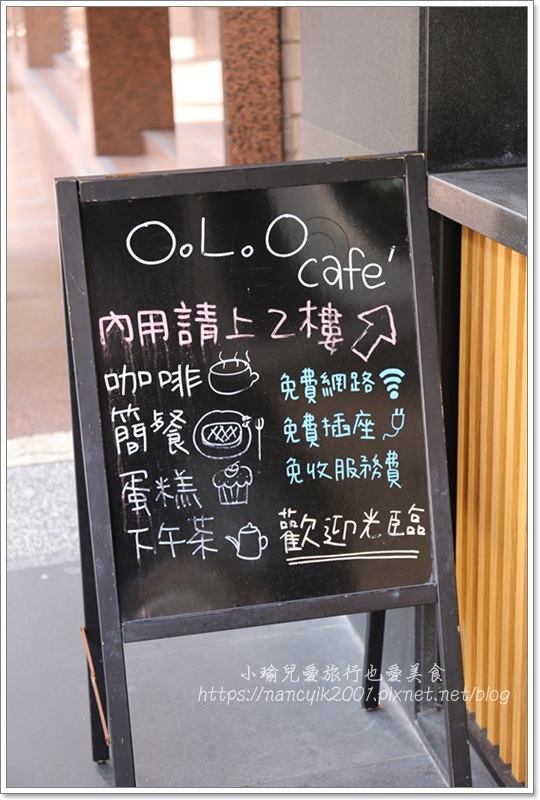 O.L.O
café
內用請上2樓
咖啡
簡餐
蛋糕
下午茶
免費網路
免費插座
免收服務費
歡迎光臨
小瑜兒愛旅行也愛美食
https://nancyik2001.pixnet.net/blog